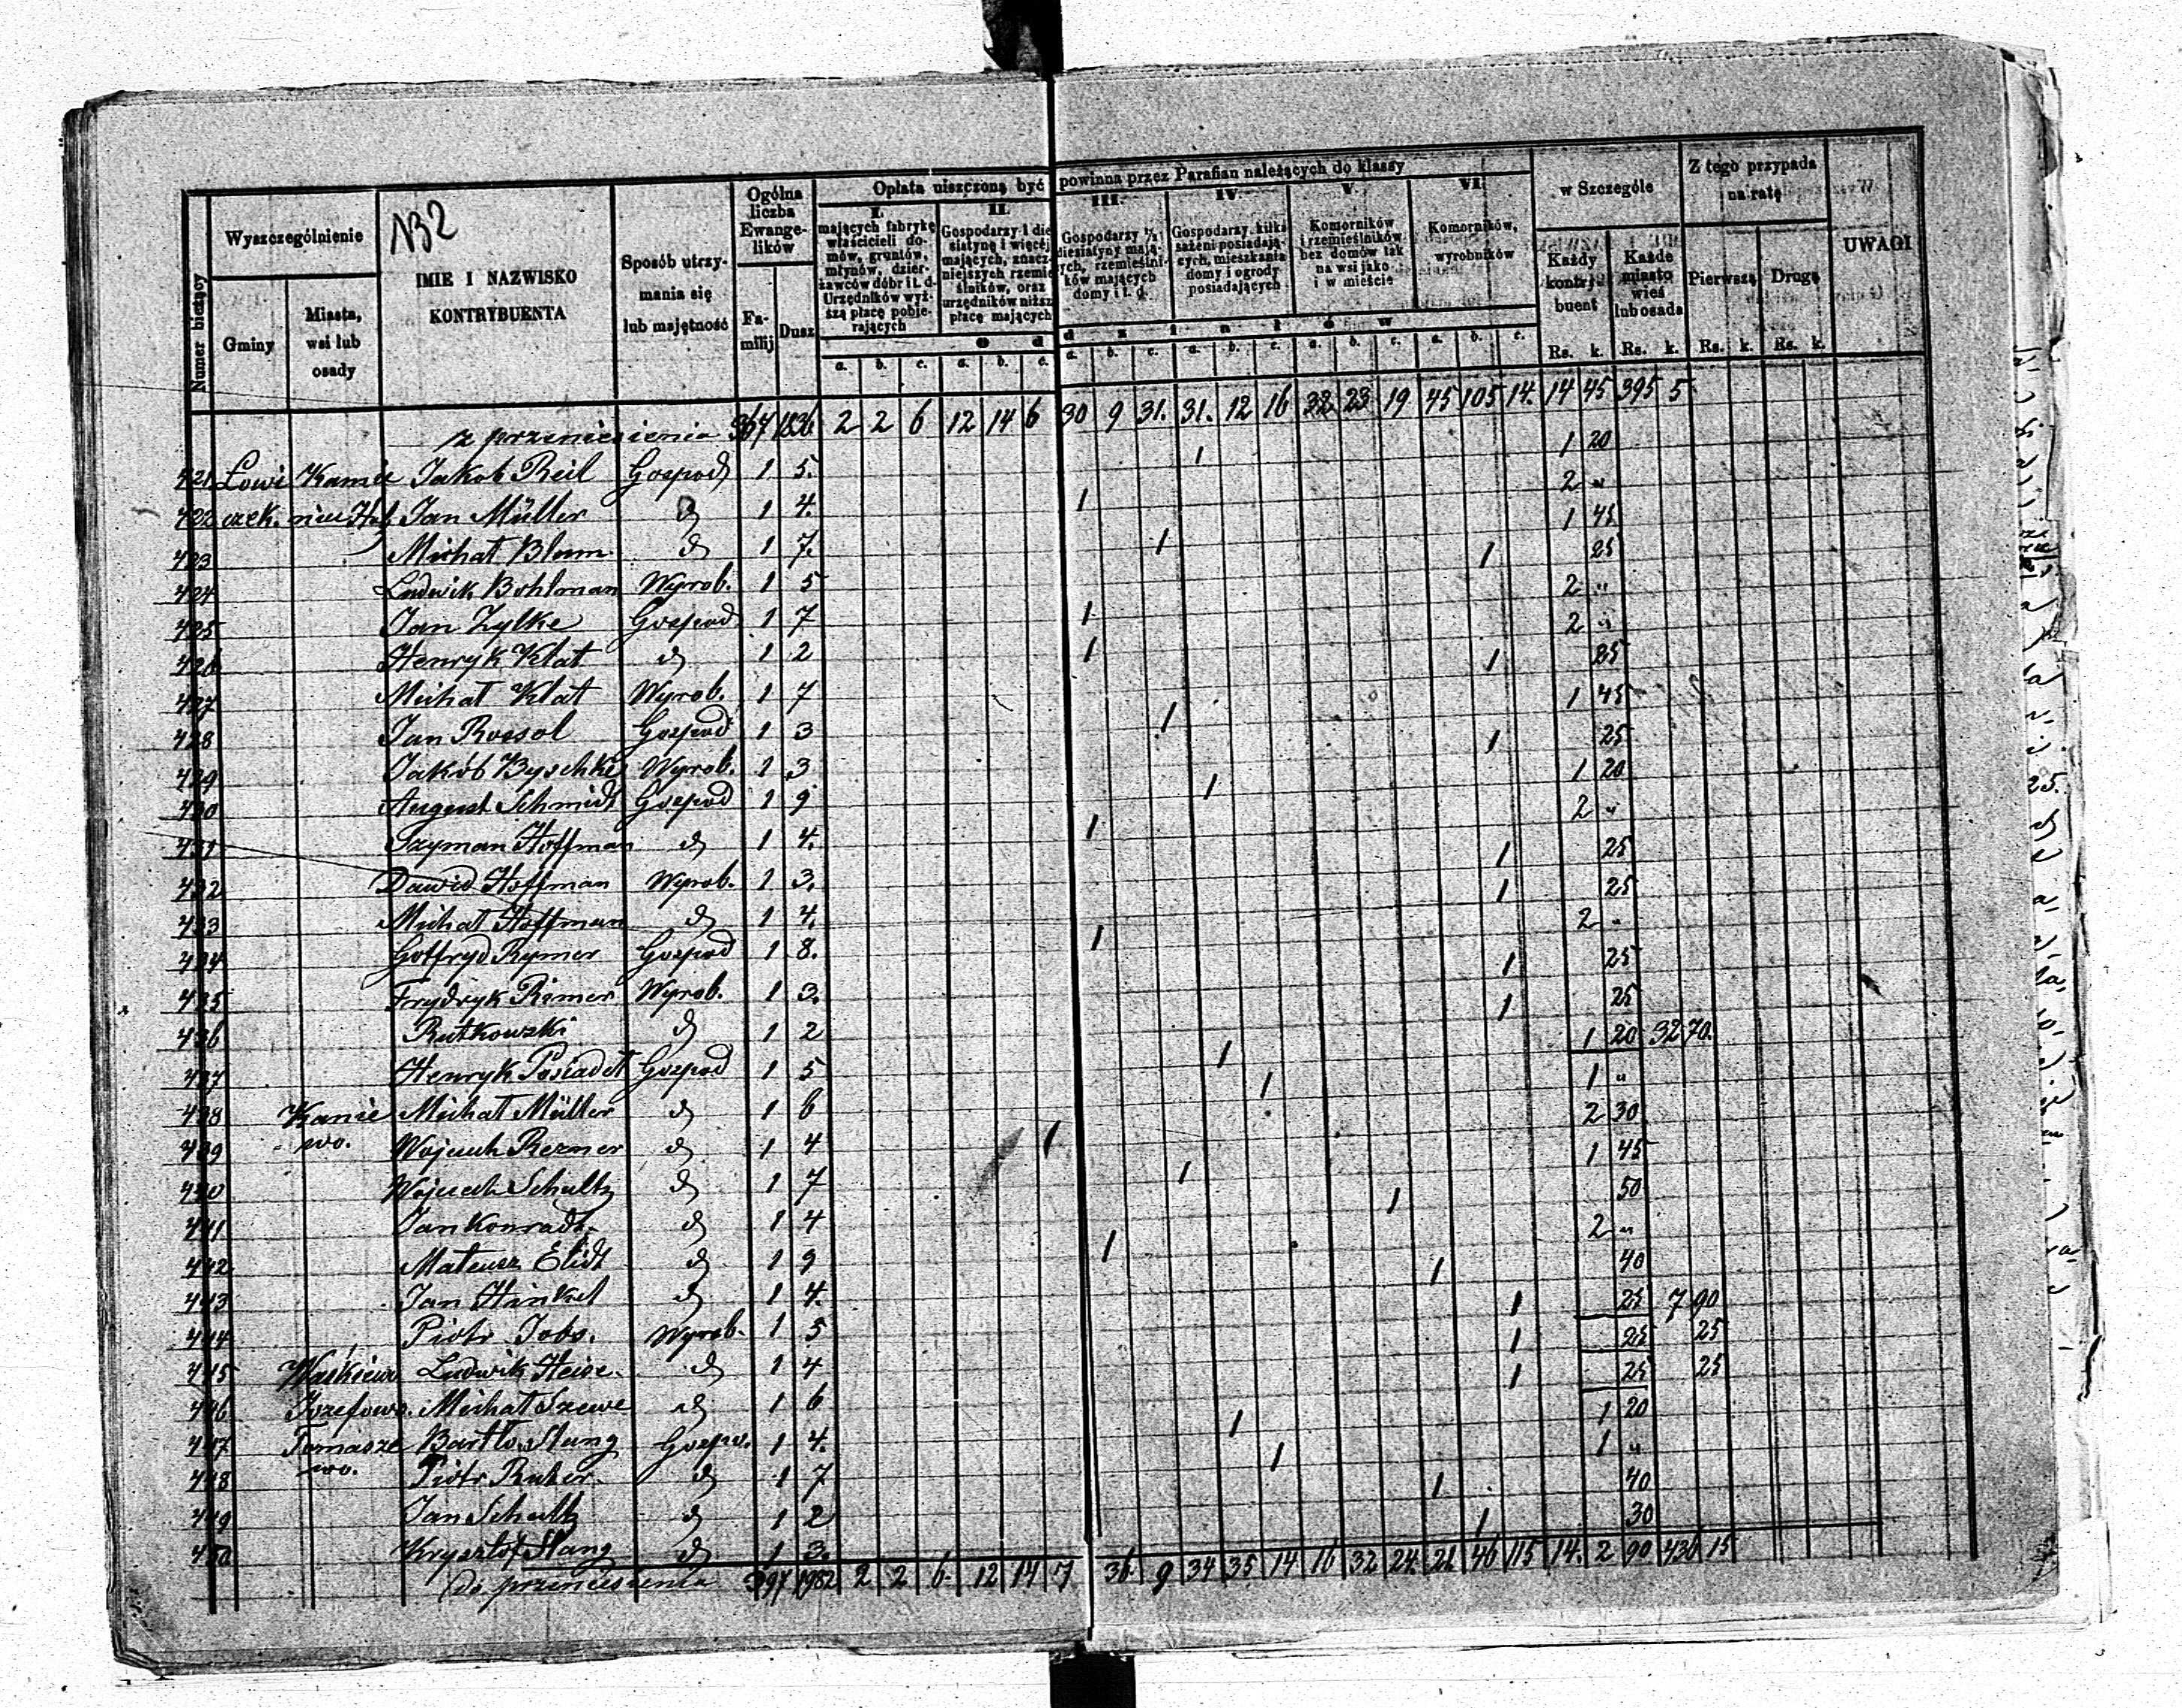 N32
Numer bieżący
Wyszczególnienie
Gminy
Miasta, wsi lub osady
IMIE I NAZWISKO KONTRYBUENTA
Sposób utrzymania się lub majętność
Ogólna liczba Ewangelików
Familij
Dusz
Opłata uiszczoną być powinna przez Parafian należących do klassy
I. mających fabrykę właścicieli domów, gruntów, młynów, dzierżawców dóbr i t. d. Urzędników wyższą płacę pobierających
II. Gospodarzy 1 diesiatynę i więcéj mających, znaczniejszych rzemieślników, oraz urzędników niższą płacę mających
III. Gospodarzy ½ diesiatyny mających, rzemieślników mających domy i t. d.
IV. Gospodarzy kilka sażeni posiadających, mieszkania domy i ogrody posiadających
V. Komorników i rzemieślników bez domów tak na wsi jako i w mieście
VI. Komorników, wyrobników
o d d z i a ł ó w
a. b. c. a. b. c. a. b. c. a. b. c. a. b. c. a. b. c.
w Szczególe
Każdy kontrybuent
Każde miasto wieś lub osada
Z tego przypada na ratę
Pierwszą
Drugą
Rs. k. Rs. k. Rs. k. Rs. k.
UWAGI
z przeniesienia 367 1836 2 2 6 12 14 6 30 9 31. 31. 12 16 32 23 19 45 105 14. 14 45 395 5
421 Lowi Kamie Jakob Reil Gospod 1 5. 1 1 20
422 czek. Jan Müller d 1 4. 1 2 "
423 Michał Blum d 1 7. 1 1 45
424 Ludwik Bohlman Wyrob. 1 5 1 25
425 Jan Zylke Gospod 1 7 1 2 "
426 Henryk Klat d 1 2 1 2 "
427 Michał Klat Wyrob. 1 7 1 25
428 Jan Rossol Gospod 1 3 1 1 45
429 Jakób Byschke Wyrob. 1 3 1 25
430 August Schmidt Gospod 1 9 1 1 20
431 Szyman Hoffman d 1 4. 1 2 "
432 Dawid Hoffman Wyrob. 1 3. 1 25
433 Michał Hoffman d 1 4. 1 25
434 Gotfryd Rymer Gospod 1 8. 1 2 "
435 Frydryk Rimer Wyrob. 1 3. 1 25
436 Rutkowski d 1 2 1 25
437 Henryk Gospod 1 5 1 1 20 32 70.
438 Kanie Michał Müller d 1 6 1 1 "
439 wo. Wojciech Rezner d 1 4 1 2 30
440 Wojciech Schultz d 1 7 1 1 45
441 Jan Konradt d 1 4 1 50
442 Mateusz Elidt d 1 9 1 2 "
443 Jan Hinkel d 1 4. 1 40
444 Piotr Jobs. Wyrob. 1 5 1 25 7 90
445 Ludwik Heise. d 1 4 1 25 25
446 Jozefowo. Michał Szewe d 1 6 1 25 25
447 Tomasze Bartło. Stang Gospo. 1 4. 1 1 20
448 wo. Piotr Ruker d 1 7 1 1 "
449 Jan Schultz d 1 2 1 40
450 Krysztof Stang d 1 3. 1 30
do przeniesienia 397 1982 2 2 6. 12 14 7 36. 9 34 35 14 16 32 24. 21 46 115 14. 2 90 436 15